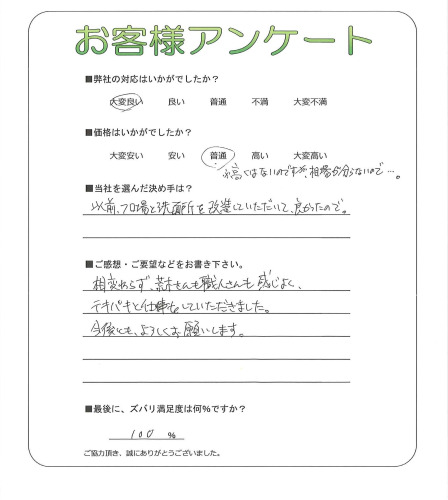 お客様アンケート
■弊社の対応はいかがでしたか?
大変良い 良い 普通 不満 大変不満
■価格はいかがでしたか?
大変安い 安い 普通 高い 大変高い
高くはないのですが、相場が分らないので…。
■当社を選んだ決め手は?
以前、フロ場と洗面所を改装していただいて、良かったので。
■ご感想・ご要望などをお書き下さい。
相変わらず、荒木さんも職人さんも感じよく、
テキパキと仕事をしていただきました。
今後とも、よろしくお願いします。
■最後に、ズバリ満足度は何%ですか?
100 %
ご協力頂き、誠にありがとうございました。